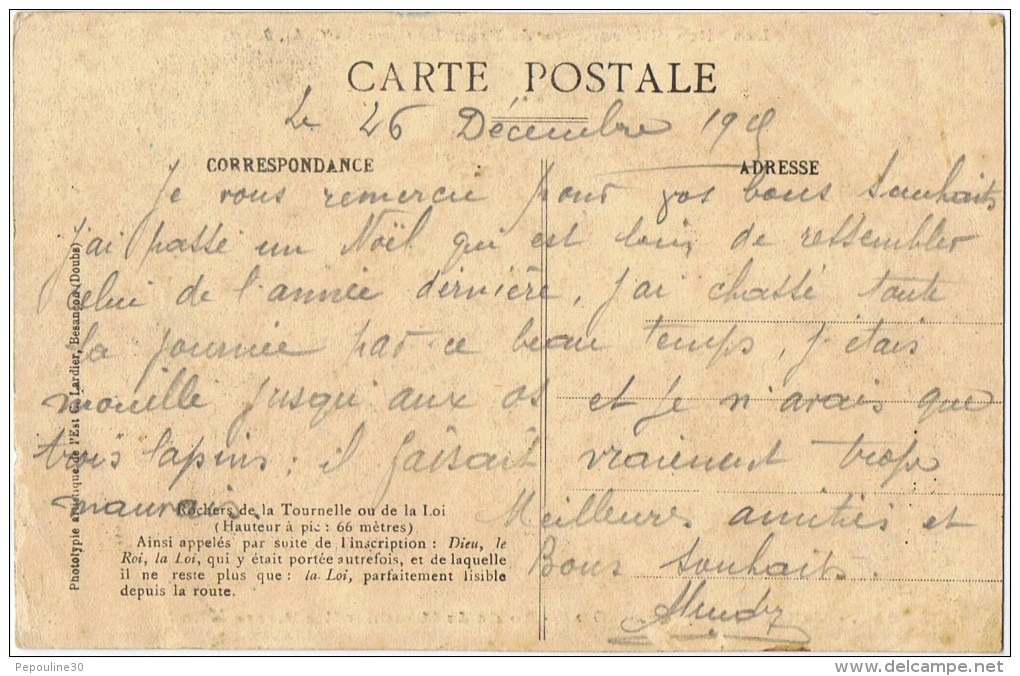 CARTE POSTALE
Le 26 Décembre 19
CORRESPONDANCE
ADRESSE
Je vous remercie pour vos bons souhaits
j'ai passé un Noël qui est loin de ressembler
celui de l'année dernière, j'ai chassé toute
la journée par ce beau temps, j'étais
mouillé jusqu'aux os et je n'avais que
trois lapins : il faisait vraiment trop
mauvais.
Meilleures amitiés et
Bons souhaits.
Rochers de la Tournelle ou de la Loi
(Hauteur à pic : 66 mètres)
Ainsi appelés par suite de l'inscription : Dieu, le
Roi, la Loi, qui y était portée autrefois, et de laquelle
il ne reste plus que : la Loi, parfaitement lisible
depuis la route.
Phototypie artistique de l'Est Lardier, Besançon (Doubs)
Pepouline30
www.delcampe.net